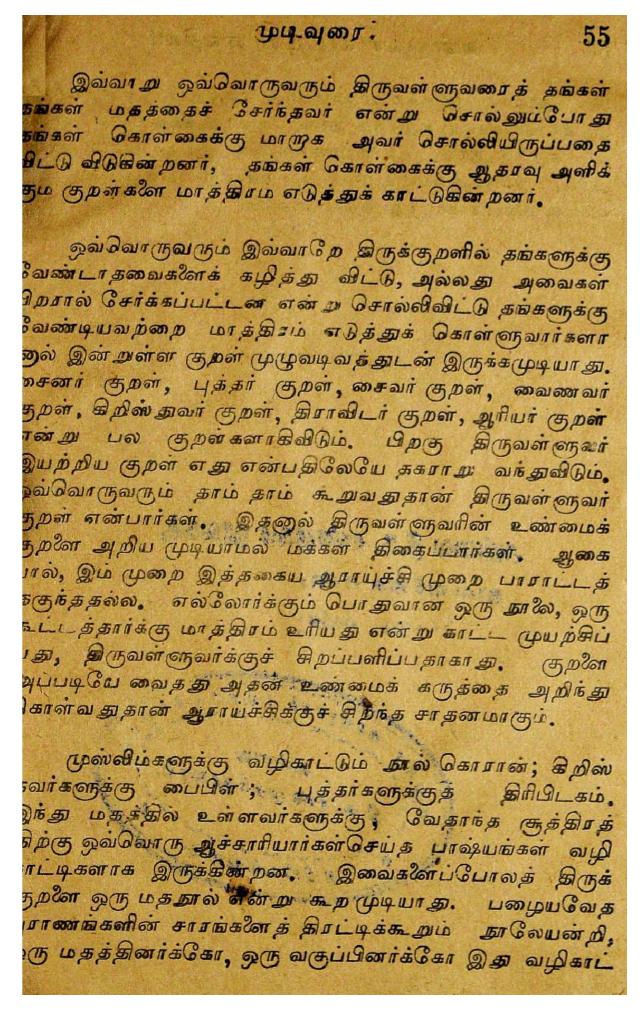 முடிவுரை. 55
இவ்வாறு ஒவ்வொருவரும் திருவள்ளுவரைத் தங்கள்
தங்கள் மதத்தைச் சேர்ந்தவர் என்று சொல்லும்போது
தங்கள் கொள்கைக்கு மாறாக அவர் சொல்லியிருப்பதை
விட்டு விடுகின்றனர், தங்கள் கொள்கைக்கு ஆதரவு அளிக்
கும் குறள்களை மாத்திரம் எடுத்துக் காட்டுகின்றனர்.
ஒவ்வொருவரும் இவ்வாறே திருக்குறளில் தங்களுக்கு
வேண்டாதவைகளைக் கழித்து விட்டு, அல்லது அவைகள்
பிறரால் சேர்க்கப்பட்டன என்று சொல்லிவிட்டு தங்களுக்கு
வேண்டியவற்றை மாத்திரம் எடுத்துக் கொள்ளுவார்களா
னால் இன்றுள்ள குறள் முழுவடிவத்துடன் இருக்கமுடியாது.
சைனர் குறள், புத்தர் குறள், சைவர் குறள், வைணவர்
குறள், கிறிஸ்துவர் குறள், திராவிடர் குறள், ஆரியர் குறள்
என்று பல குறள்களாகிவிடும். பிறகு திருவள்ளுவர்
இயற்றிய குறள் எது என்பதிலேயே தகராறு வந்துவிடும்.
ஒவ்வொருவரும் தாம் தாம் கூறுவதுதான் திருவள்ளுவர்
குறள் என்பார்கள். இதனால் திருவள்ளுவரின் உண்மைக்
குறளை அறிய முடியாமல் மக்கள் திகைப்பார்கள். ஆகை
யால், இம் முறை இத்தகைய ஆராய்ச்சி முறை பாராட்டத்
தகுந்ததல்ல. எல்லோர்க்கும் பொதுவான ஒரு நூலை, ஒரு
கூட்டத்தார்க்கு மாத்திரம் உரியது என்று காட்ட முயற்சிப்
பது, திருவள்ளுவர்க்குச் சிறப்பளிப்பதாகாது. குறளை
அப்படியே வைத்து அதன் உண்மைக் கருத்தை அறிந்து
கொள்வதுதான் ஆராய்ச்சிக்குச் சிறந்த சாதனமாகும்.
முஸ்லிம்களுக்கு வழிகாட்டும் நூல் கொரான்; கிறிஸ்
தவர்களுக்கு பைபிள்; புத்தர்களுக்குத் திரிபிடகம்.
இந்து மதத்தில் உள்ளவர்களுக்கு, வேதாந்த சூத்திரத்
திற்கு ஒவ்வொரு ஆச்சாரியார்கள்செய்த பாஷ்யங்கள் வழி
காட்டிகளாக இருக்கின்றன. இவைகளைப்போலத் திருக்
குறளை ஒரு மதநூல் என்று கூற முடியாது. பழையவேத
புராணங்களின் சாரங்களைத் திரட்டிக்கூறும் நூலேயன்றி,
ஒரு மதத்தினர்க்கோ, ஒரு வகுப்பினர்க்கோ இது வழிகாட்